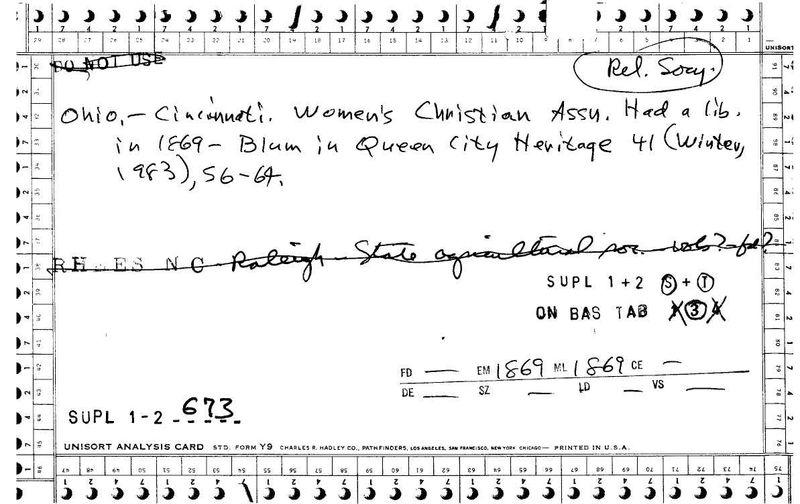 DO NOT USE
Rel. Socy.
Ohio,- Cincinnati. Women's Christian Assn. Had a lib.
in 1869 - Blum in Queen City Heritage 41 (Winter,
1983), 56-64.
NC Raleigh State agricultural soc. vols?
SUPL 1+2 S + T
ON BAS TAB 1 3 4
FD — EM 1869 ML 1869 CE —
DE — SZ — LD — VS —
SUPL 1-2 673
UNISORT ANALYSIS CARD STD. FORM Y9 CHARLES R. HADLEY CO., PATHFINDERS, LOS ANGELES, SAN FRANCISCO, NEW YORK CHICAGO— PRINTED IN U.S.A.
UNISORT